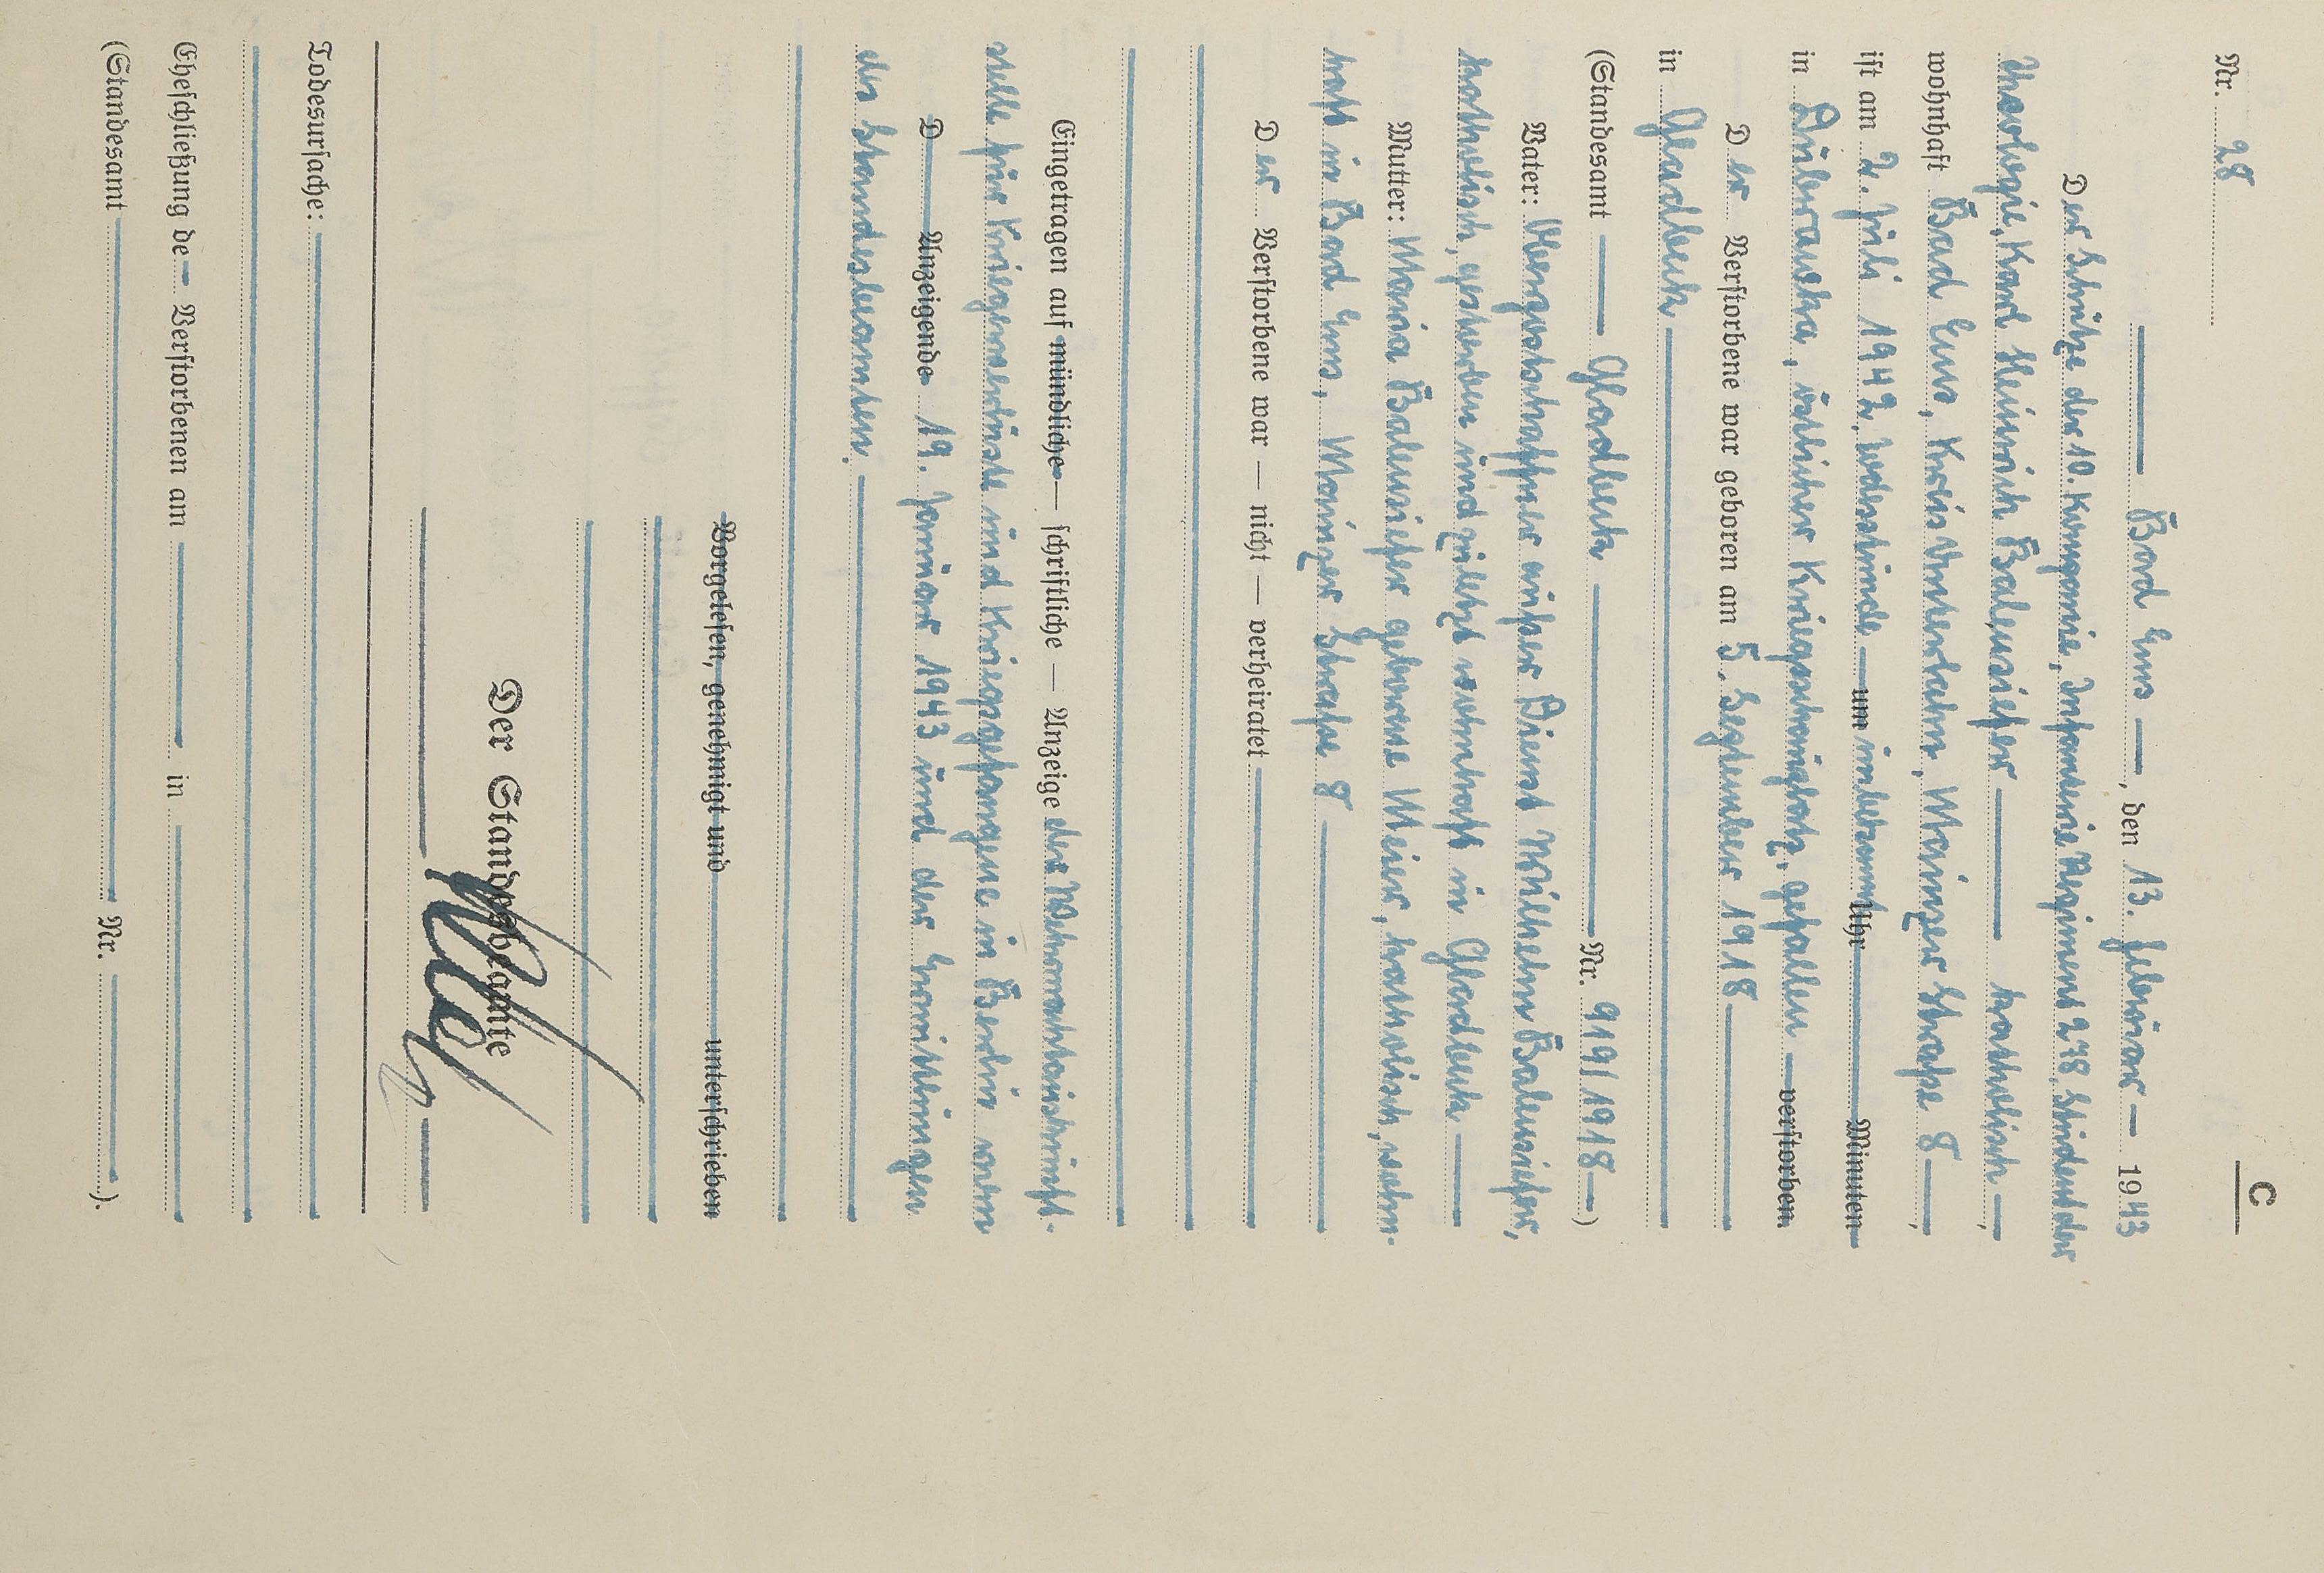 C
Nr. 28
Bad Ems, den 13. Februar 1943
Der Schütze der 10. Kompanie, Infanterie Regiment 278, Student der
Karl Heinrich Balensiefer katholisch
wohnhaft Bad Ems, Kreis Unterlahn, Mainzer Straße 8,
ist am 2. Juli 1942, Todesstunde um unbekannt Uhr Minuten
in Dubrawka, östlicher Kriegsschauplatz, gefallen verstorben.
Der Verstorbene war geboren am 5. September 1918
in Gladbeck
(Standesamt Gladbeck Nr. 919/1918)
Vater: Oberpostschaffner außer Dienst Wilhelm Balensiefer,
katholisch, gestorben und zuletzt wohnhaft in Gladbeck
Mutter: Maria Balensiefer geborene Meier, katholisch, wohn-
haft in Bad Ems, Mainzer Straße 8
Der Verstorbene war — nicht — verheiratet
Eingetragen auf mündliche — schriftliche — Anzeige der Wehrmachtauskunft-
stelle für Kriegerverluste und Kriegsgefangene in Berlin vom
D Anzeigende 19. Januar 1943 und der Ermittlungen
des Standesbeamten.
Vorgelesen, genehmigt und unterschrieben
Der Standesbeamte
Todesursache:
Eheschließung de Verstorbenen am in
(Standesamt Nr. ).